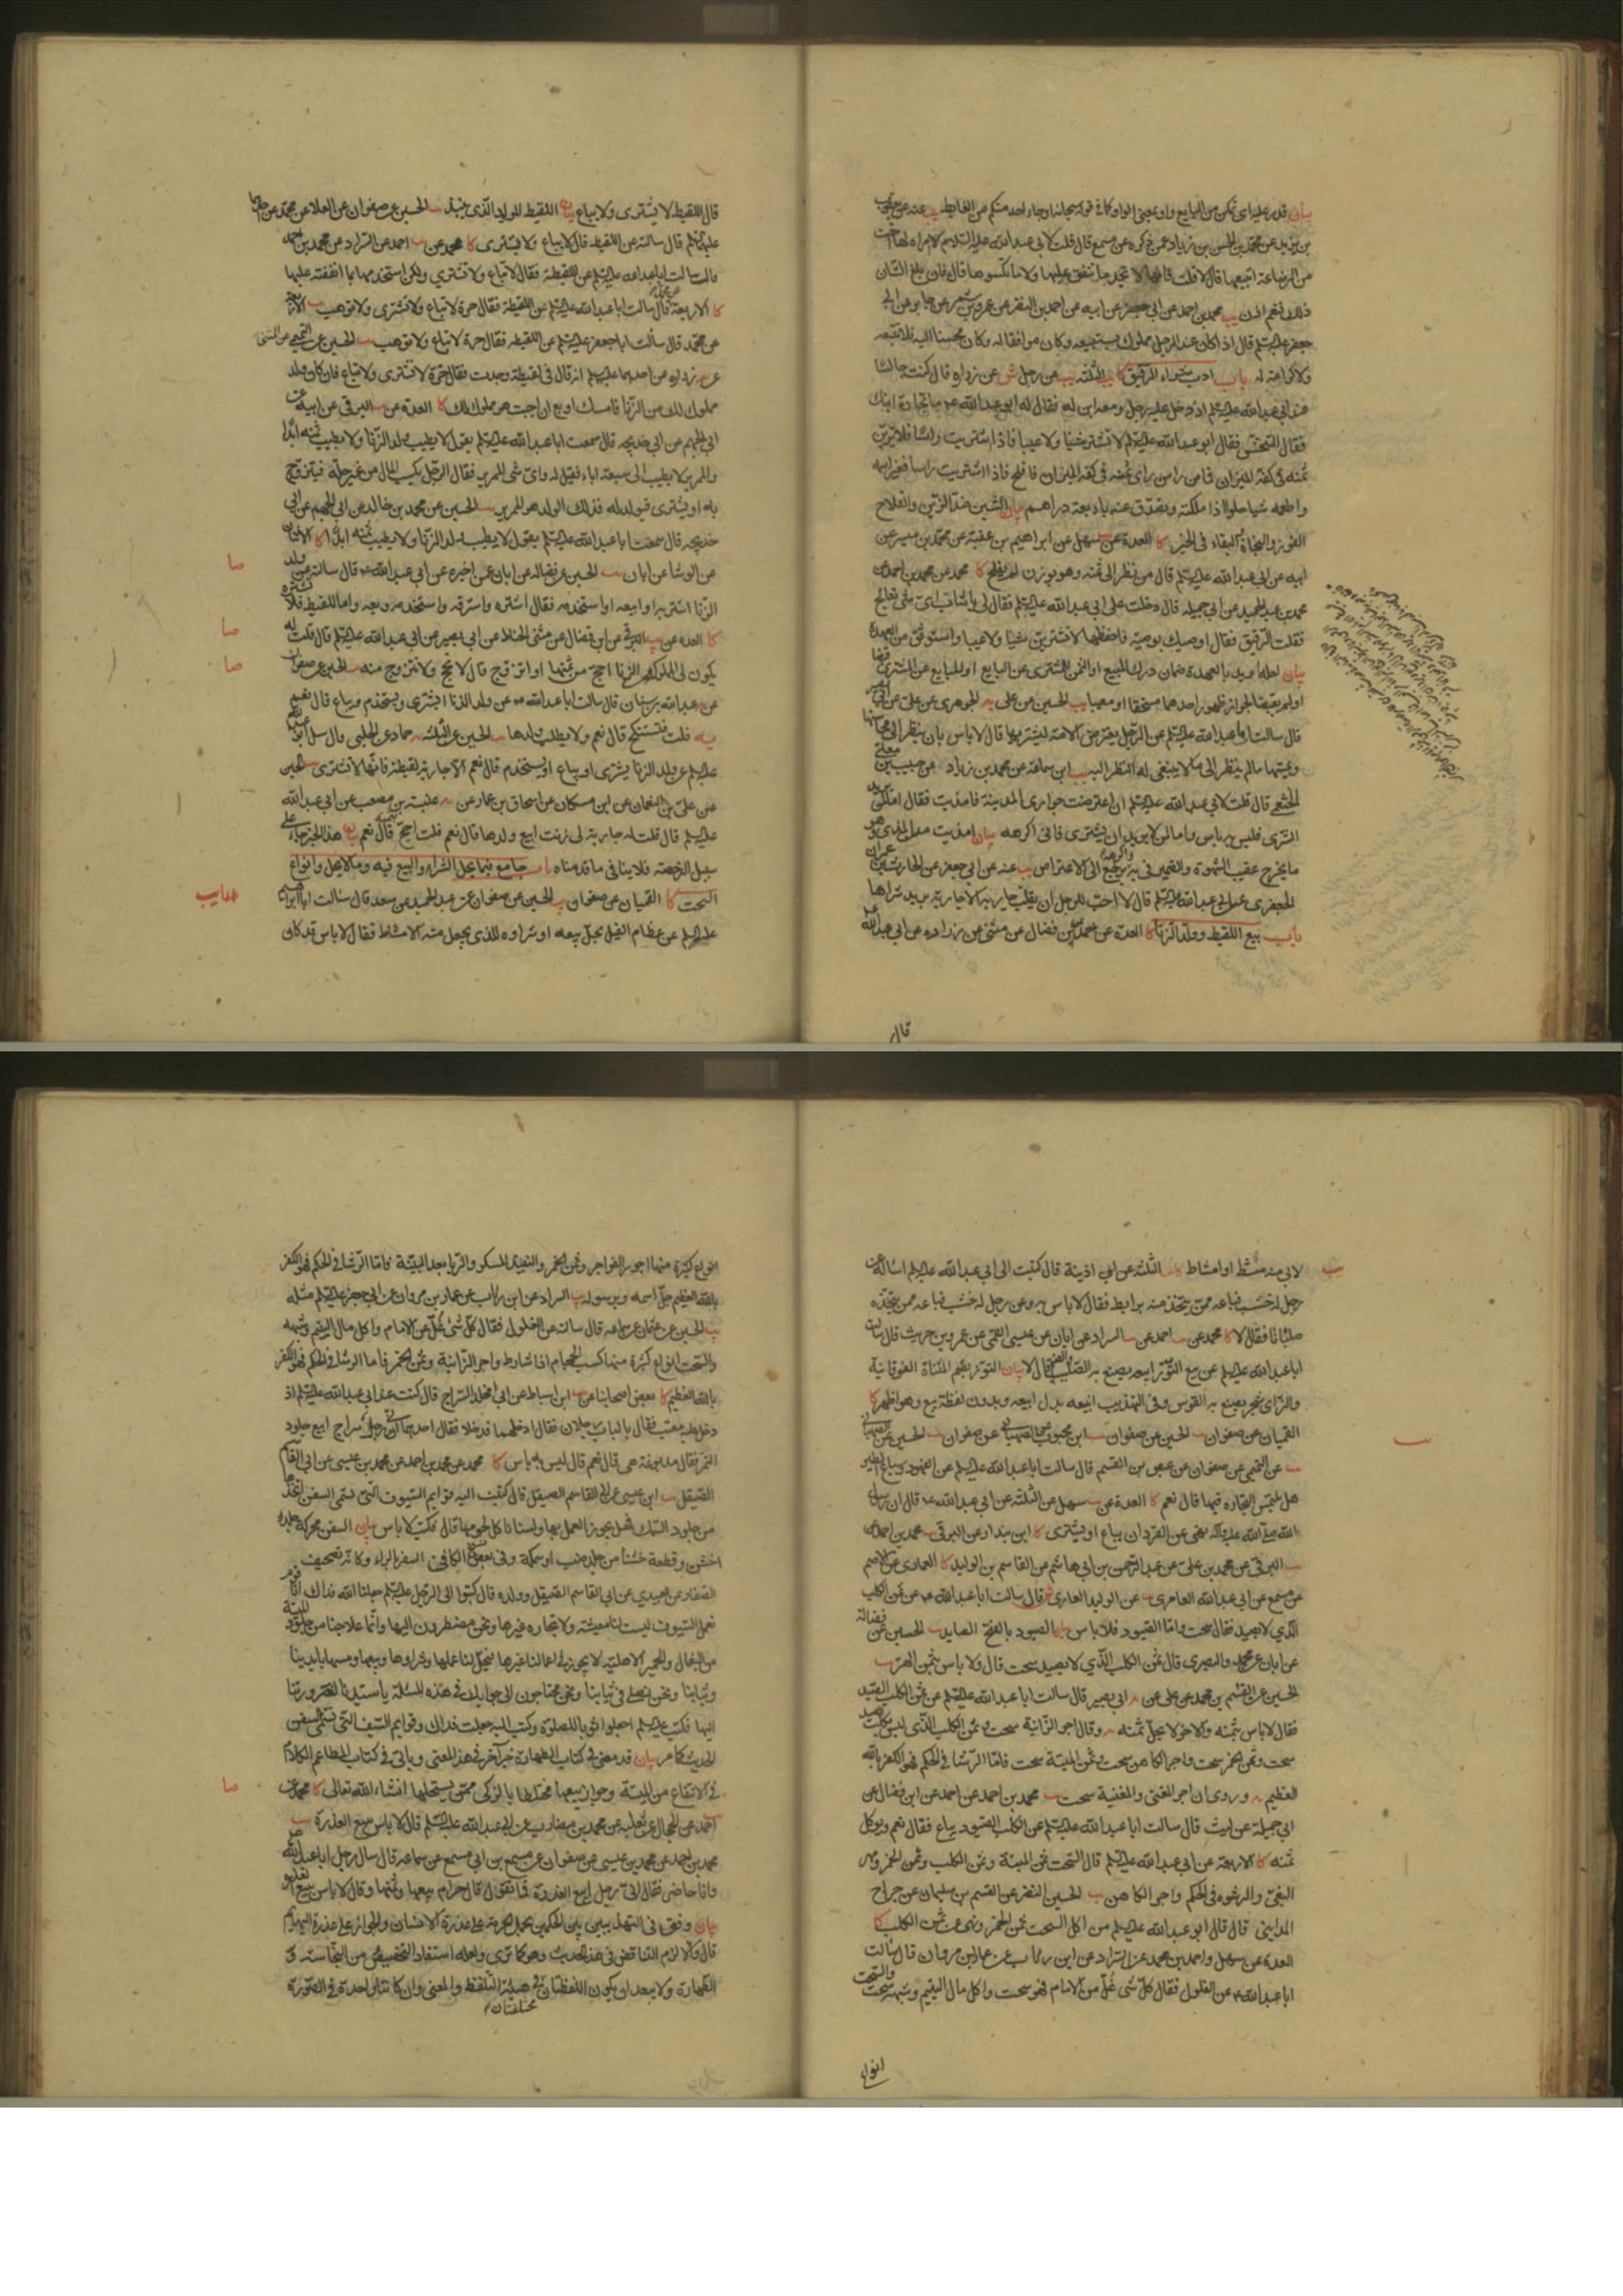 بيان قدر عليه اى تمكن من البايع واو بمعنى الواو كما فى قوله سبحانه او جاء احد منكم من الغايط يب عنه عن يعقوب
بن يزيد عن محمد بن الحسن بن زياد عمن ذكره عن مسمع قال قلت لابى عبد الله عليه السلام لامراه لها اخت
من الرضاعة اتبيعها قال لا قلت فانها لا تجد ما تنفق عليها ولا ما تكسوها قال فان بلغ الشان
ذلك فنعم اذن يب محمد بن احمد عن ابى جعفر عن ابيه عن احمد بن النضر عن عمرو بن شمر عن جابر عن ابى
جعفر عليه السلم قال اذا كان عند الرجل مملوك يستبيعه وكان موافقا له وكان محسنا اليه فلا تبعه
ولا كرامة له باب ادب شراء الرقيق كا يب الثلثة عن رجل عن زراره قال كنت جالسا
عند ابى عبد الله عليه السلم اذ دخل عليه رجل ومعه ابن له فقال له ابو عبد الله ما تجارة ابنك
فقال التنخس فقال ابو عبد الله عليه السلم لا تشتر شينا ولا عيبا فاذا اشتريت راسا فلا ترين
ثمنه فى كفة الميزان فما من راس راى ثمنه فى كفه الميزان فافلح فاذا اشتريت راسا فغير اسمه
واطعمه شيا حلوا اذا ملكته وتصدق عنه باربعة دراهم بيان الشين ضد الزين والفلاح
الفوز والنجاة والبقاء فى الخير كا العدة عن سهل عن ابراهيم بن عقبة عن محمد بن ميسر عن
ابيه عن ابى عبد الله عليه السلم قال من نظر الى ثمنه وهو يوزن لم يفلح كا محمد عن محمد بن احمد عن
محمد بن عبد الحميد عن ابى جميله قال دخلت على ابى عبد الله عليه السلم فقال لى يا شاب اى شى تعالج
فقلت الرقيق فقال اوصيك بوصية فاحفظها لا تشترين شينا ولا عيبا واستوثق من العهدة
بيان لعله اريد بالعهدة ضمان درك المبيع او الثمن للمشترى عن البايع او للبايع عن المشترى
قال سالت ابا عبد الله عليه السلم عن الرجل يعترض الامة ليشتريها قال لا باس بان ينظر الى محاسنها
ويمسها ما لم ينظر الى ما لا ينبغى له النظر اليه يب ابن سماعة عن محمد بن زياد عن حبيب بن
الخثعمى قال قلت لابى عبد الله عليه السلم انى اعترضت جوارى المدينة فامذيت فقال اما لمن
الشرى فليس به باس واما لمن لا يريد ان يشترى فانى اكرهه بيان امذيت من المذى وهو
ما يخرج عقيب الشهوة والضمير فى به يرجع الى الاعتراض يب عنه عن ابى جعفر عن الحارث بن
الجعفرى عن ابى عبد الله عليه السلم قال لا احب للرجل ان يقلب جاريه الا جارية يريد شراها
باب بيع اللقيط وولد الزنا كا العدة عن احمد عن ابن فضال عن مثنى عن زراره عن ابى عبد الله
قال
قال اللقيط لا يشترى ولا يباع بيان اللقيط المولود الذى ينبذ يب الحسين عن صفوان عن العلا عن محمد عن احدهما
عليهما السلم قال سالته عن اللقيط قال لا يباع ولا يشترى كا محمد عن احمد عن السراد عن محمد بن احمد
قال سالت ابا عبد الله عليه السلم عن اللقيطة فقال لا تباع ولا تشترى ولكن استخدمها بما انفقته عليها
كا الاربعة عن محمد قال سالت ابا عبد الله عليه السلم عن اللقيطة فقال حرة لا تباع ولا تشترى ولا توهب يب الاربعة
عن محمد قال سألت ابا جعفر عليه السلم عن اللقيطه فقال حرة لا تباع ولا توهب يب الحسين عن التميمى عن المثنى
عن زراره عن احدهما عليهما السلم انه قال فى لقيطة وجدت فقال حرة لا تشترى ولا تباع فان كان ولد
مملوك لك من الزنا فامسك او بع ان احببت هو مملوك لك كا العدة عن البرقى عن ابيه عن
ابى الجهم عن ابى خديجه قال سمعت ابا عبد الله عليه السلم يقول لا يطيب ولد الزنا ولا يطيب ثمنه ابدا
والممريز لا يطيب الى سبعة اباء فقيل له واى شى الممريز فقال الرجل يكسب المال من غير حله فيتزوج
به او يشترى فيولد له فذلك الولد هو الممريز يب الحسين عن محمد بن خالد عن ابى الجهم عن ابى
خديجه قال سمعت ابا عبد الله عليه السلم يقول لا يطيب ولد الزنا ولا يطيب ثمنه ابدا كا الاثنان
عن الوشا عن ابان يب الحسين عن فضاله عن ابان عمن اخبره عن ابى عبد الله قال سالته عن ولد
صا
الزنا اشتريه او ابيعه او استخدمه فقال اشتره واسترقه واستخدمه وبعه واما اللقيط فلا تشتره
كا العدة عن البرقى عن ابن فضال عن مثنى الحناط عن ابى بصير عن ابى عبد الله عليه السلم قال قلت له
صا
يكون لى المملوكة من الزنا احج من ثمنها او اتزوج قال لا تحج ولا تتزوج منه يب الحسين عن صفوان
صا
عن عبد الله بن سنان قال سالت ابا عبد الله عن ولد الزنا ايشترى ويستخدم ويباع قال نعم
قلت فتستنكح قال نعم ولا يطلب ولدها يب الحسين عن الثلثه عن حماد عن الحلبى قال سئل ابو عبد الله
عليه السلم عن ولد الزنا يشترى او يباع او يستخدم قال نعم الا جارية لقيطة فانها لا تشترى يب الحسين
عن على بن النعمان عن ابن مسكان عن اسحاق بن عمار عن عنبسة بن مصعب عن ابى عبد الله
عليه السلم قال قلت له جارية لى زنت ابيع ولدها قال نعم قلت احج بثمنه قال نعم بيان هذا الخبر جاء على
سبيل الرخصة فلا ينافى ما قدمناه باب جامع فيما يحل الشراء والبيع فيه وما لا يحل وانواع
السحت كا القميان عن صفوان يب الحسين عن صفوان عن عبد الحميد بن سعد قال سالت ابا ابراهيم
عليه السلم عن عظام الفيل يحل بيعه او شراوه للذى يجعل منه الامشاط فقال لا باس قد كان
لابى منه مشط او امشاط كا الثلثة عن ابن اذينة قال كتبت الى ابى عبد الله عليه السلم اسأله عن
رجل له خشب فباعه ممن يتخذ منه برابط فقال لا باس به وعن رجل له خشب فباعه ممن يتخذه
صلبانا فقال لا كا محمد عن احمد عن السراد عن ابان عن عيسى القمى عن عمرو بن حريث قال سالت
ابا عبد الله عليه السلم عن بيع التوز ابيعه يصنع به الصليب والصنم قال لا بيان التوز بضم المثناة الفوقانية
والزاى شجر يصنع به القوس وفى التهذيب ابيعه بدل ابيعه وبدون لفظة بيع وهو اظهر كا
القميان عن صفوان يب الحسين عن صفوان ابن محبوب عن الصهبانى عن صفوان يب الحسين عن
عن التميمى عن صفوان عن عيص بن القسم قال سالت ابا عبد الله عليه السلم عن الفهود وسباع الطير
هل يلتمس التجارة فيها قال نعم كا العدة عن سهل عن الثلثة عن ابى عبد الله قال ان رسول
الله صلى الله عليه واله نهى عن القرد ان يباع او يشترى كا ابن بندار عن البرقى محمد بن احمد عن
البرقى عن محمد بن على عن عبد الرحمن بن ابى هاشم عن القاسم بن الوليد كا العمارى عن الاصم
عن مسمع عن ابى عبد الله العامرى عن الوليد العمارى قال سالت ابا عبد الله عن ثمن الكلب
الذى لا يصيد فقال سحت واما الصيود فلا باس بيان الصيود بالفتح الصايد يب الحسين عن فضالة
عن ابان عن محمد والبصرى قال ثمن الكلب الذى لا يصيد سحت قال ولا باس بثمن الهر يب
الحسين عن القسم بن محمد عن على عن ابى بصير قال سالت ابا عبد الله عليه السلم عن ثمن الكلب الصيد
فقال لا باس بثمنه والاخر لا يحل ثمنه وقال اجر الزانية سحت وثمن الكلب الذى ليس بكلب الصيد
سحت وثمن الخمر سحت واجر الكاهن سحت وثمن الميتة سحت فاما الرشا فى الحكم فهو الكفر بالله
العظيم وروى ان اجر المغنى والمغنية سحت يب محمد بن احمد عن احمد عن ابن فضال عن
ابى جميلة عن ليث قال سالت ابا عبد الله عليه السلم عن الكلب الصيود يباع فقال نعم ويوكل
ثمنه كا الاربعة عن ابى عبد الله عليه السلم قال السحت ثمن الميتة وثمن الكلب وثمن الخمر ومهر
البغى والرشوة فى الحكم واجر الكاهن يب الحسين النضر عن القسم بن سليمان عن جراح
المداينى قال قال ابو عبد الله عليه السلم من اكل السحت ثمن الخمر ونهى عن ثمن الكلب كا
العدة عن سهل واحمد بن محمد عن السراد عن ابن رئاب عن عمار بن مروان قال سالت
ابا عبد الله عن الغلول فقال كل شى غل من الامام فهو سحت واكل مال اليتيم وشبهه سحت والسحت
انواع
انواع كثيرة منها اجور الفواجر وثمن الخمر والنبيذ المسكر والربا بعد البينة فاما الرشا فى الحكم فهو الكفر
بالله العظيم جل اسمه وبرسوله يب السراد عن ابن رئاب عن عمار بن مروان عن ابى جعفر عليه السلم مثله
يب الحسين عن عثمان عن سماعه قال سالته عن الغلول فقال كل شى غل عن الامام واكل مال اليتيم وشبهه
والسحت انواع كثيرة منها كسب الحجام اذا شارط واجر الزانية وثمن الخمر فاما الرشا فى الحكم فهو الكفر
بالله العظيم كا بعض اصحابنا عن ابن اسباط عن ابى مخلد السراج قال كنت عند ابى عبد الله عليه السلم اذ
دخل عليه معتب فقال بالباب رجلان فقال ادخلهما فدخلا فقال احدهما انى رجل سراج ابيع جلود
النمر فقال مدبوغة هى قال نعم قال ليس به باس كا محمد عن محمد بن احمد عن محمد بن عيسى عن ابى القاسم
الصيقل يب ابن عيسى عن ابى القاسم الصيقل قال كتبت اليه قوايم السيوف التى تسمى السفن اتخذها
من جلود السمك فهل يجوز العمل بها ولسنا ناكل لحومها قال فكتب لا باس بيان السفن محركة جلد
اخشن وقطعة خشنا من جلد ضب او سمكة وفى بعض نسخ الكافى السفر بالراء وكانه تصحيف
الصفار عن العبيدى عن ابى القاسم الصيقل وولده قال كتبوا الى الرجل عليه السلم جعلنا الله فداك انا قوم
نعمل السيوف ليست لنا معيشة ولا تجارة غيرها ونحن مضطرون اليها وانما علاجنا من جلود الميتة
من البغال والحمير الاهلية لا يجوز فى اعمالنا غيرها فيحل لنا عملها وشراوها وبيعها ومسها بايدينا
وثيابنا ونحن نصلى فى ثيابنا ونحن محتاجون الى جوابك فى هذه المسئلة يا سيدنا لضرورتنا
اليها فكتب عليه السلم اجعلوا ثوبا للصلوة وكتب اليه جعلت فداك وقوايم السيف التى تسمى السفن
الحديث كما مر بيان قد مضى فى كتاب الطهارة خبر آخر فى هذا المعنى وياتى فى كتاب المطاعم الكلام
فى الانتفاع من الميتة وجواز بيعها مختلطا بالذكى ممن يستحلها انشاء الله تعالى كا محمد عن
صا
احمد عن الحجال عن ثعلبه عن محمد بن مضارب عن ابى عبد الله عليه السلم قال لا باس ببيع العذرة يب
محمد بن احمد عن محمد بن عيسى عن صفوان عن مسمع بن ابى مسمع عن سماعه قال سال رجل ابا عبد الله
وانا حاضر فقال انى رجل ابيع العذرة فما تقول قال حرام بيعها وثمنها وقال لا باس ببيع العذرة
بيان وفق فى التهذيبين بين الحكمين بحمل الحرمة على عذرة الانسان والجواز على عذرة البهايم
قال والا لزم التناقض فى هذا الحديث وهو كما ترى ولعله استفاد التخصيص من النجاسة و
الطهارة ولا يبعد ان يكون اللفظتان مختلفتان فى هيئة التلفظ والمعنى وان كانتا واحدة فى الصورة